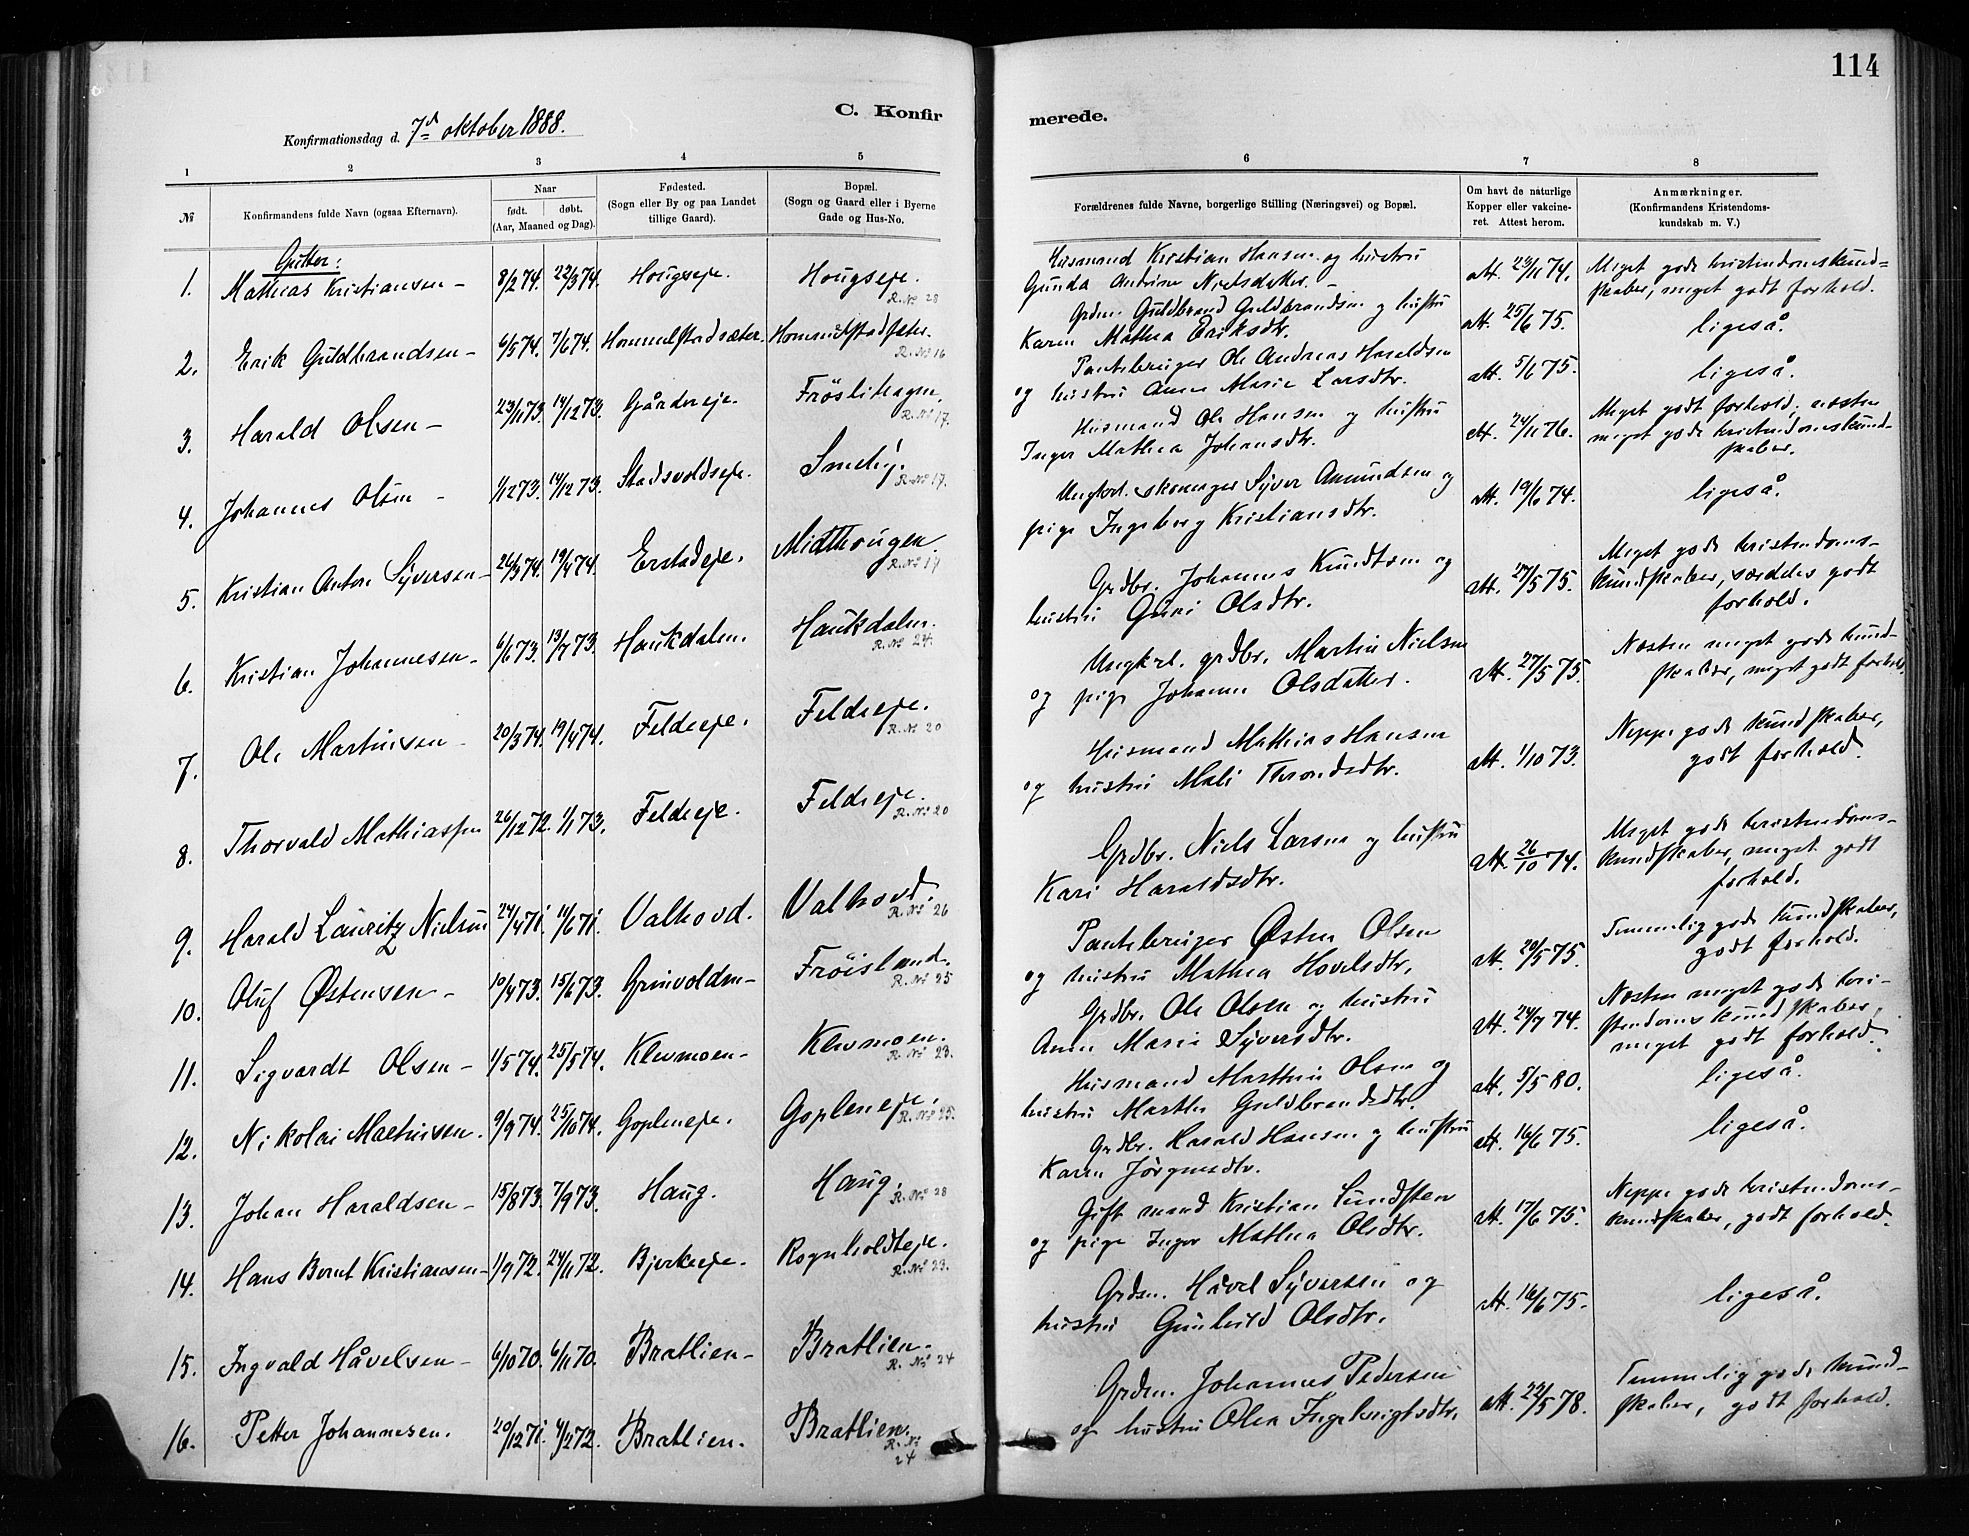 114
Konfirmationsdag d. 7d oktober 1888.
C. Konfirmerede.
1 2 3 4 5 6 7 8
№
Konfirmandens fulde Navn (ogsaa Efternavn).
Naar
født. døbt.
(Aar, Maaned og Dag).
Fødested.
(Sogn eller By og paa Landet
tillige Gaard).
Bopæl.
(Sogn og Gaard eller i Byerne
Gade og Hus-No.
Forældrenes fulde Navne, borgerlige Stilling (Næringsvei) og Bopæl.
Om havt de naturlige
Kopper eller vakcine-
ret. Attest herom.
Anmærkninger.
(Konfirmandens Kristendoms-
kundskab m. V.)
Gutter:
1. Mathias Kristiansen - 8/2 74. 22/3 74. Hougseje. Hougseje.
R. № 28
Husmand Kristian Hansen og hustru
Gunda Andrine Nielsdatter. -
att. 23/11 74.
Meget gode kristendomskund=
skaber, meget godt forhold.
2. Erik Guldbrandsen - 6/5 74. 7/6 74. Hommelstadsæter. Hommelstadsæter.
R. № 16
Grdm. Guldbrand Guldbrandsen og hustru
Karen Mathea Eriksdtr.
att. 25/6 75.
ligeså.
3. Harald Olsen - 23/11 73. 14/12 73. Gårdereje. Fröslihagen.
R. № 17.
Pantebruger Ole Andreas Haraldsen
og hustru Anne Marie Larsdtr.
att. 5/6 75.
ligeså.
4. Johannes Olsen - 1/12 73. 14/12 73. Stadsvoldseje. Smehy.
R. № 17.
Husmand Ole Hansen og hustru
Inger Mathea Johansdtr.
att. 24/11 76.
Meget godt forhold; næsten
meget gode kristendomskund-
skaber.
5. Kristian Anton Syversen - 26/3 74. 19/4 74. Erstadeje. Midthougen.
R. № 17
Ungkrl. skomager Syver Amundsen og
pige Ingeborg Kristiansdtr.
att. 19/6 74.
ligeså.
6. Kristian Johannesen - 6/6 73. 13/7 73. Haukdalen. Haukdalen.
R. № 24.
Grdbr. Johannes Knudtsen og
hustru Guri Olsdtr.
att. 27/5 75.
Meget gode kristendoms-
kundskaber, særdeles godt
forhold.
7. Ole Martinsen - 20/3 74. 19/4 74. Feldeeje. Feldeeje.
R. № 20
Ungkrl. grdbr. Martin Nielsen
og pige Johanne Olsdatter.
att. 27/5 75.
Næsten meget gode kund-
skaber, meget godt forhold.
8. Thorvald Mathiassen 26/12 72. 1/1 73. Feldeeje. Feldeeje.
R. № 20
Husmand Mathias Hansen
og hustru Mali Throndsdtr.
att. 1/10 73.
Neppe gode kundskaber,
godt forhold.
9. Harald Lauritz Nielsen 24/4 71. 11/6 71. Valhovd. Valhovd.
R. № 26
Grdbr. Niels Larsen og hustru
Kari Haraldsdtr.
att. 26/10 74.
Meget gode kristendoms-
kundskaber, meget godt
forhold.
10. Oluf Østensen - 10/4 73. 15/6 73. Grinvolden - Fröisland.
R. № 25
Pantebruger Østen Olsen
og hustru Mathea Hovelsdtr.
att. 20/5 75.
Temmelig gode kundskaber,
godt forhold.
11. Sigvardt Olsen - 1/5 74. 25/5 74. Klevmoen - Klevmoen.
R. № 23.
Grdbr. Ole Olsen og hustru
Anne Marie Syversdtr.
att. 24/7 74.
Næsten meget gode kri-
stendomskundskaber,
meget godt forhold.
12. Nikolai Martinsen. 9/9 74. 25/10 74. Gopleneje. Gopleneje.
R. № 25.
Husmand Marthin Olsen og
hustru Marthe Guldbrandsdtr.
att. 5/5 80.
ligeså.
13. Johan Haraldsen - 15/8 73. 7/9 73. Haug. Haug.
R. № 28
Grdbr. Harald Hansen og hustru
Karen Jörgensdtr.
att. 16/6 75.
ligeså.
14. Hans Bernt Kristiansen - 1/9 72. 24/11 72. Bjerkeeje. Rognholdteje.
R. № 23.
Gift mand Kristian Lundsten
og pige Inger Mathea Olsdtr.
att. 17/6 75.
Neppe gode kristendoms-
kundskaber, godt forhold.
15. Ingvald Håvelsen - 6/10 70. 6/11 70. Bratlien - Bratlien -
R. № 24
Grdm. Håvel Syversen og
hustru Gunhild Olsdtr.
att. 16/6 75.
ligeså.
16. Petter Johannesen. 20/12 71. 4/2 72. Bratlien. Bratlien.
R. №
24
Grdm. Johannes Pedersen
og hustru Olea Ingebrigtsdtr.
att. 22/5 78.
Temmelig gode kund-
skaber, godt forhold.